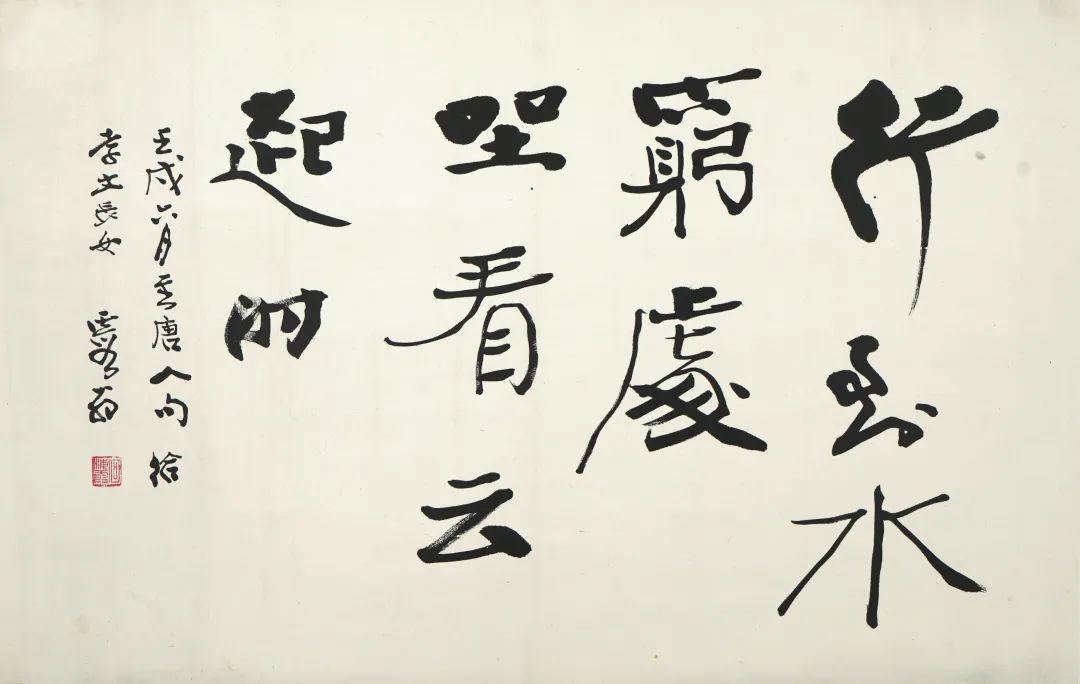 行到水
窮處
坐看云
起时
壬戌六月書唐人句 給
文長女 翁